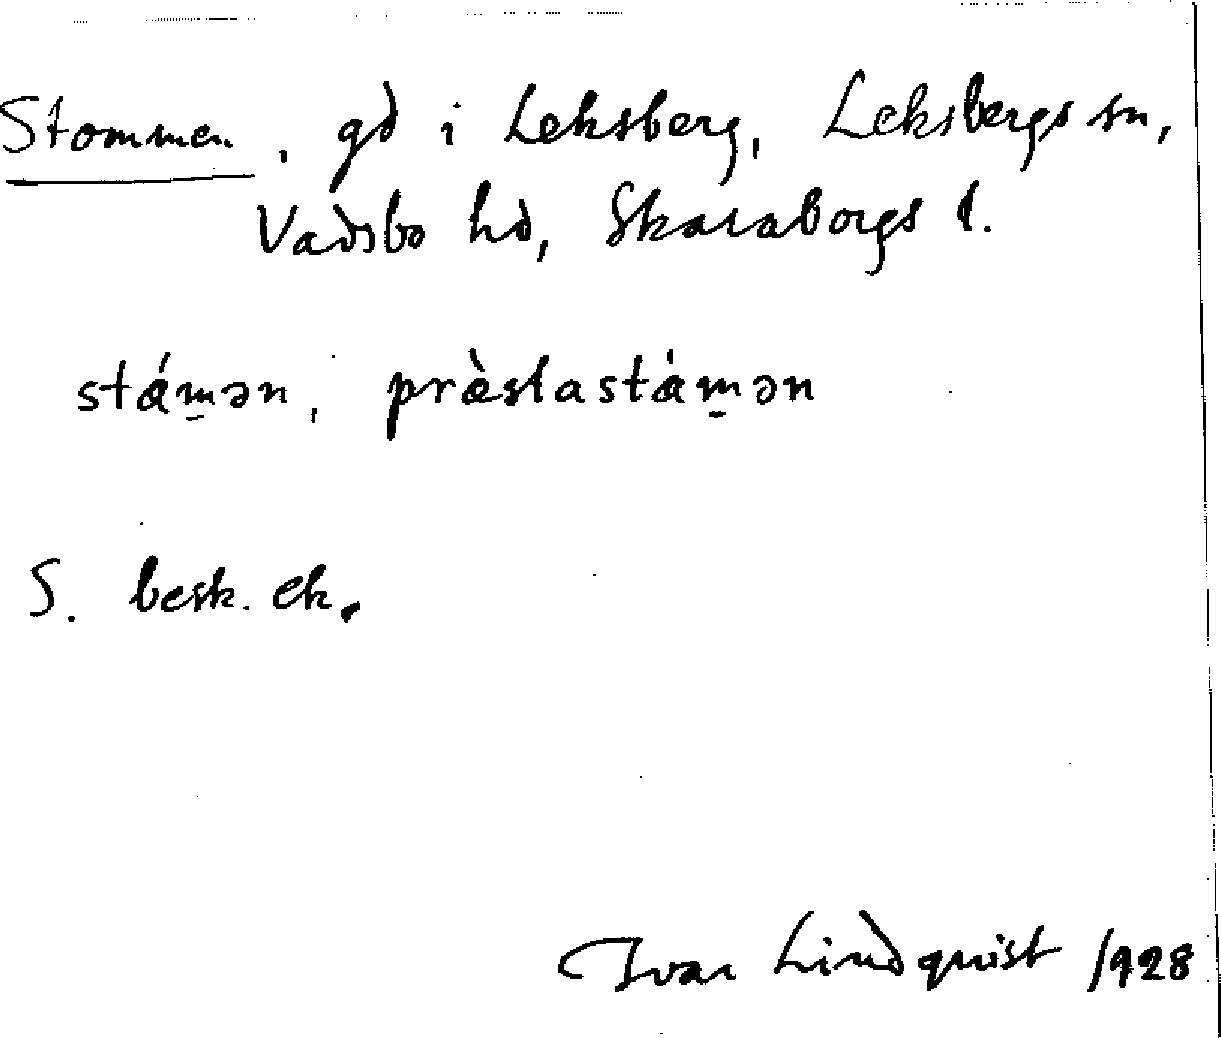 Stommen, gd i Leksberg, Leksbergs sn,
Vadsbo hd, Skaraborgs l.
stǻm̱ən, præ̀stastǻm̱ən
S. besk. ek.
Ivar Lindquist 1928